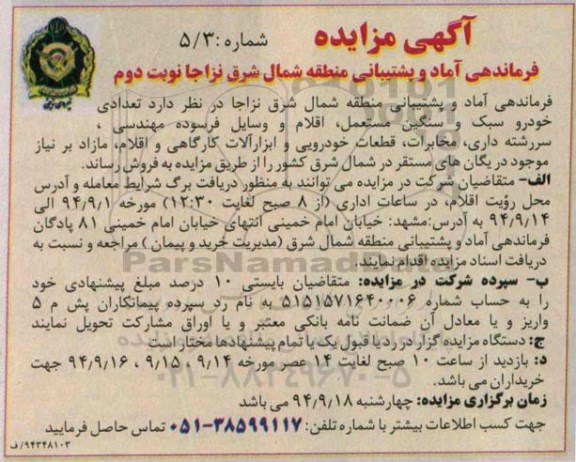 آگهی مزایده
شماره: ۵/۳
فرماندهی آماد و پشتیبانی منطقه شمال شرق نزاجا نوبت دوم
فرماندهی آماد و پشتیبانی منطقه شمال شرق نزاجا در نظر دارد تعدادی
خودرو سبک و سنگین مستعمل، اقلام و وسایل فرسوده مهندسی ،
سررشته داری، مخابرات، قطعات خودرویی و ابزارآلات کارگاهی و اقلام، مازاد بر نیاز
موجود در یگان های مستقر در شمال شرق کشور را از طریق مزایده به فروش رساند.
الف- متقاضیان شرکت در مزایده می توانند به منظور دریافت برگ شرایط معامله و آدرس
محل رؤیت اقلام، در ساعات اداری (از ۸ صبح لغایت ۱۲:۳۰) مورخه ۹۴/۹/۱ الی
۹۴/۹/۱۴ به آدرس:مشهد: خیابان امام خمینی انتهای خیابان امام خمینی ۸۱ پادگان
فرماندهی آماد و پشتیبانی منطقه شمال شرق (مدیریت خرید و پیمان ) مراجعه و نسبت به
دریافت اسناد مزایده اقدام نمایند
ParsNamadData
ب- سپرده شرکت در مزایده: متقاضیان بایستی ۱۰ درصد مبلغ پیشنهادی خود
را به حساب شماره ۵۱۵۱۵۷۱۶۴۰۰۰۶ به نام رد سپرده پیمانکاران پش م ۵
واریز و یا معادل آن ضمانت نامه بانکی معتبر و یا اوراق مشارکت تحویل نمایند
ج: دستگاه مزایده گزار در رد یا قبول یک یا تمام پیشنهادها مختار است
د: بازدید از ساعت ۱۰ صبح لغایت ۱۴ عصر مورخه ۹/۱۴ ، ۹/۱۵ ، ۹۴/۹/۱۶ جهت
خریداران می باشد.
۰۲۱-۸۸۳۴۹۶۷۰-۵
زمان برگزاری مزایده: چهارشنبه ۹۴/۹/۱۸ می باشد
جهت کسب اطلاعات بیشتر با شماره تلفن: ۳۸۵۹۹۱۱۷-۰۵۱ تماس حاصل فرمایید
۹۴۳۴۸۱۰۳/ف